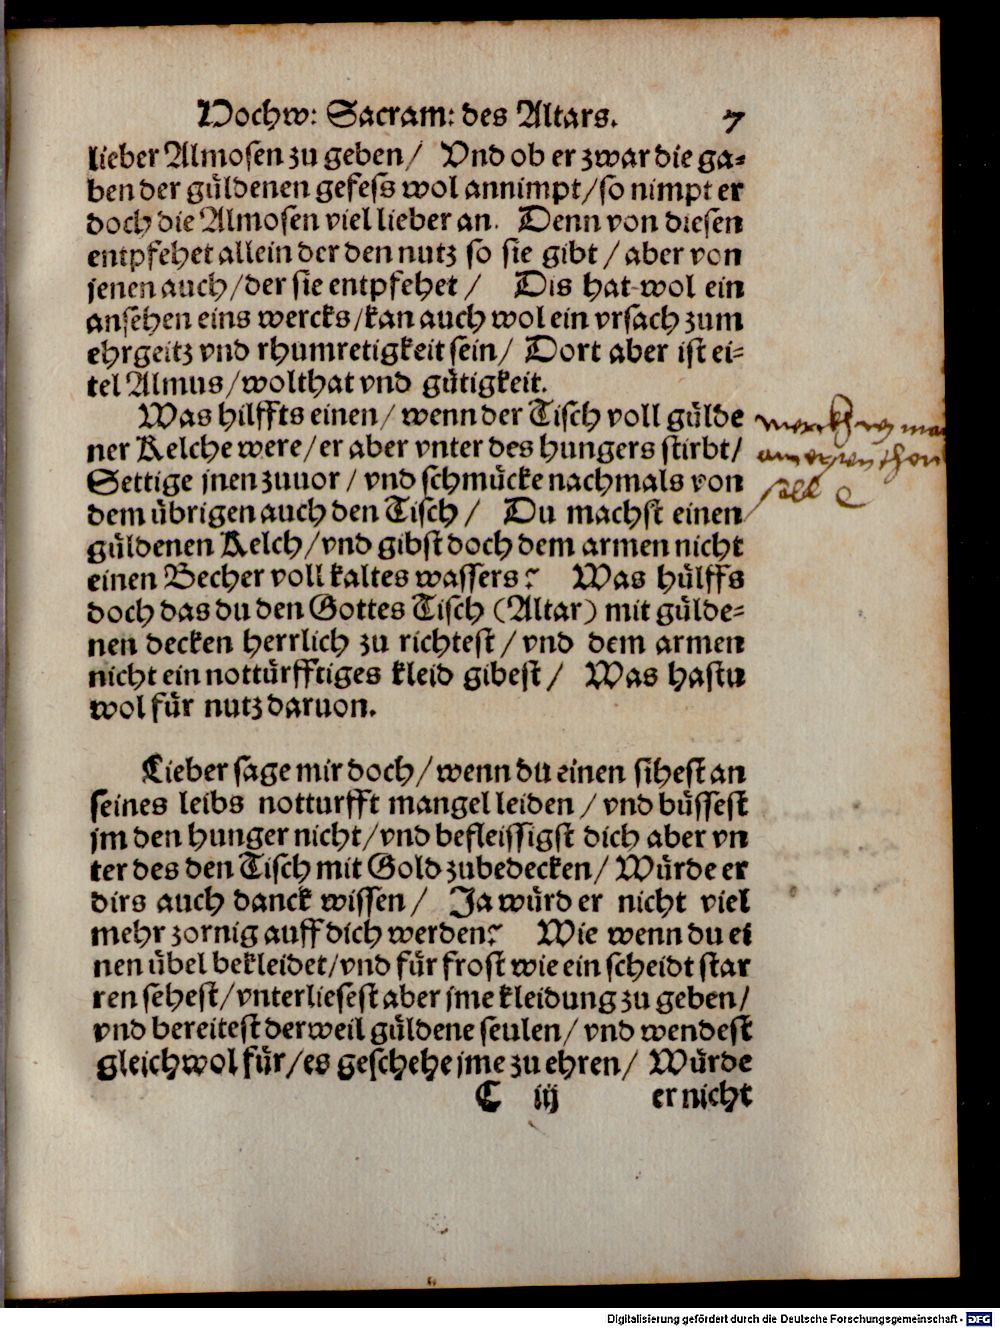 Hochw: Sacram: des Altars. 7
lieber Almosen zu geben / Vnd ob er zwar die ga⸗
ben der güldenen gefess wol annimpt / so nimpt er
doch die Almosen viel lieber an. Denn von diesen
entpfehet allein der den nutz so sie gibt / aber von
jenen auch / der sie entpfehet / Dis hat wol ein
ansehen eins wercks / kan auch wol ein vrsach zum
ehrgeitz vnd rhumretigkeit sein / Dort aber ist ei⸗
tel Almus / wolthat vnd gütigkeit.
Was hilffts einen / wenn der Tisch voll gülde
ner Kelche were / er aber vnter des hungers stirbt /
Settige jnen zuuor / vnd schmücke nachmals von
dem übrigen auch den Tisch / Du machst einen
güldenen Kelch / vnd gibst doch dem armen nicht
einen Becher voll kaltes wassers? Was hülffs
doch das du den Gottes Tisch (Altar) mit gülde⸗
nen decken herrlich zu richtest / vnd dem armen
nicht ein nottürfftiges kleid gibest / Was hastu
wol für nutz daruon.
Lieber sage mir doch / wenn du einen sihest an
seines leibs notturfft mangel leiden / vnd büssest
jm den hunger nicht / vnd befleissigst dich aber vn
ter des den Tisch mit Gold zubedecken / Würde er
dirs auch danck wissen / Ja würd er nicht viel
mehr zornig auff dich werden? Wie wenn du ei
nen übel bekleidet / vnd für frost wie ein scheidt star
ren sehest / vnterliesest aber jme kleidung zu geben /
vnd bereitest derweil güldene seulen / vnd wendest
gleichwol für / es geschehe jme zu ehren / Würde
C iij er nicht
Digitalisierung gefördert durch die Deutsche Forschungsgemeinschaft - DFG